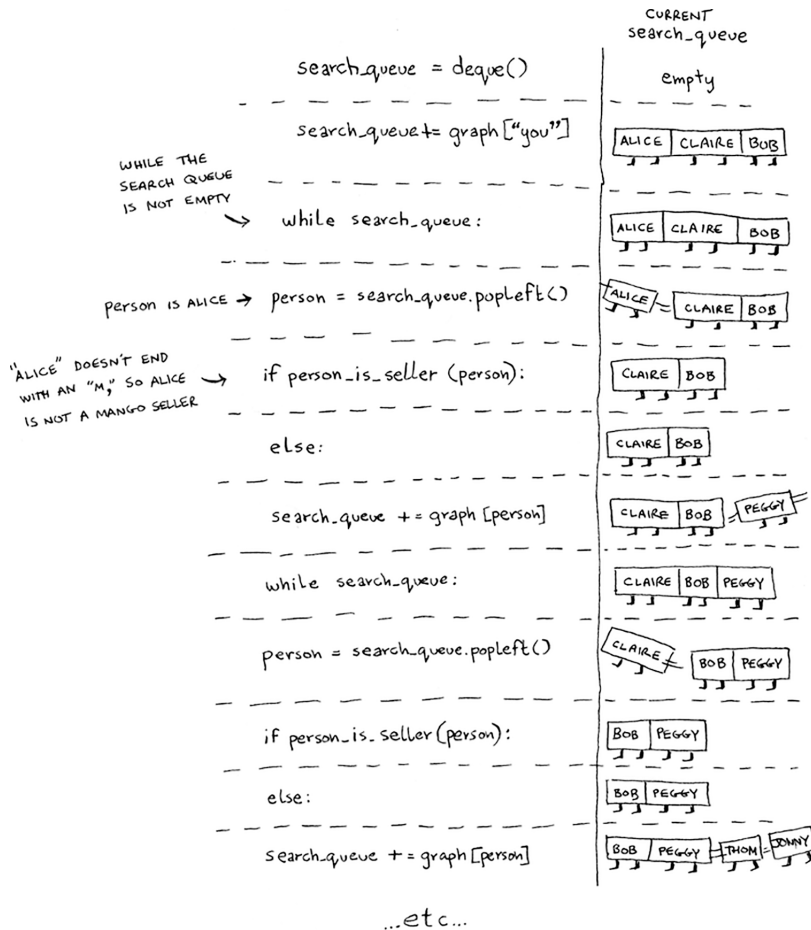 CURRENT
search_queue
search_queue = deque()
empty
search_queue += graph["you"]
ALICE CLAIRE BOB
WHILE THE
SEARCH QUEUE
IS NOT EMPTY
while search_queue:
ALICE CLAIRE BOB
person IS ALICE → person = search_queue.popleft()
ALICE CLAIRE BOB
"ALICE" DOESN'T END
WITH AN "M," SO ALICE
IS NOT A MANGO SELLER
if person_is_seller (person):
CLAIRE BOB
else:
CLAIRE BOB
search_queue += graph [person]
CLAIRE BOB PEGGY
while search_queue:
CLAIRE BOB PEGGY
person = search_queue.popleft()
CLAIRE BOB PEGGY
if person_is_seller (person):
BOB PEGGY
else:
BOB PEGGY
search_queue += graph [person]
BOB PEGGY THOM JONNY
...etc...